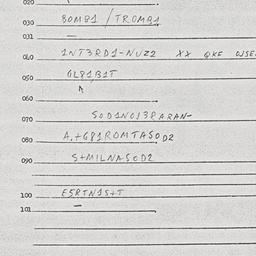 020
030 80MB1 / TROMBA
031 —
040 1NT3RD1-NUZ2 XX QKF OJSE
050 GL81B1T
060
070 SOD1NO13RARAN-
080 A.+G81ROMTASOD2
090 S+MILNASOD2
100 E5RTN1S+T
101 —